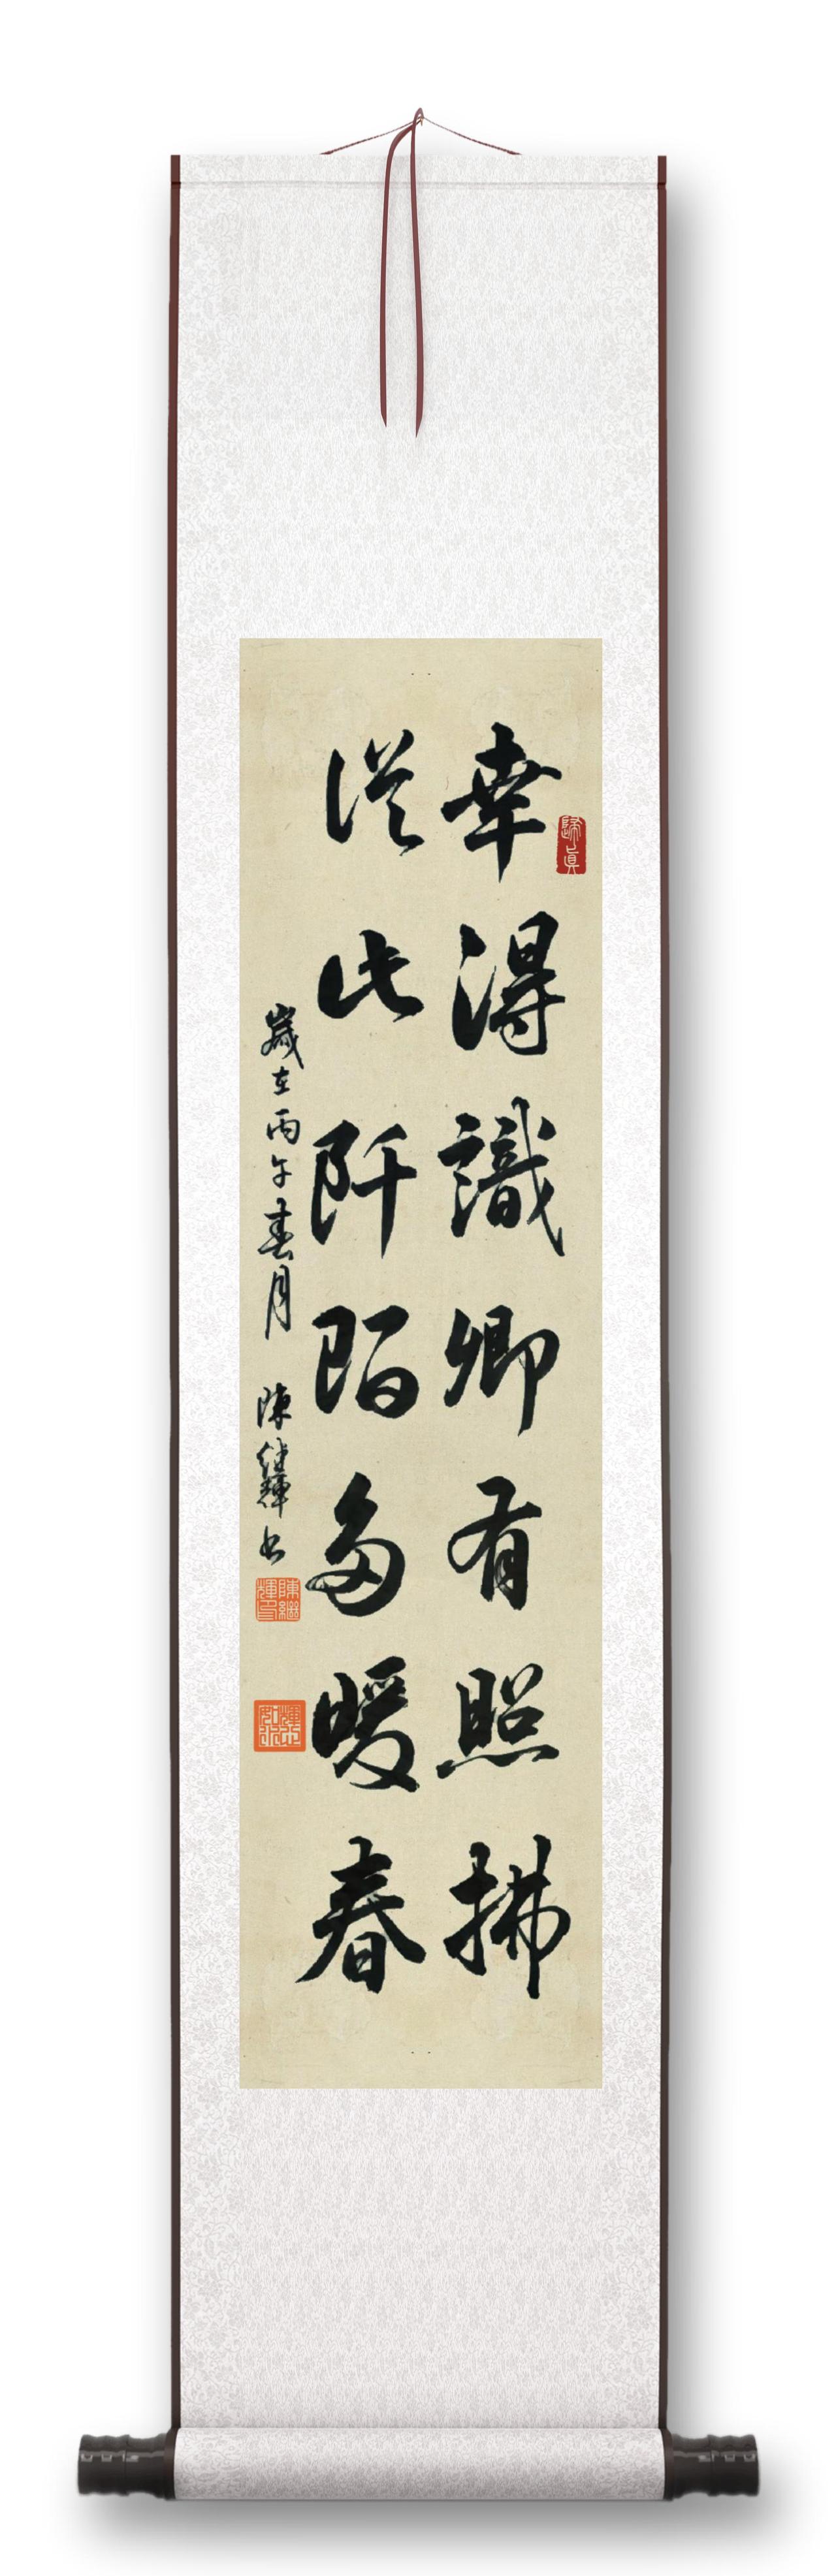 幸得識卿有照拂
從此阡陌多暖春
歲在丙午春月 陳繼輝書
歸真
陳繼輝印